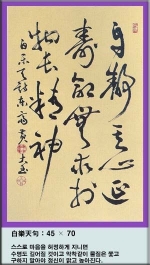 自靜其心延
壽命無求於
物長精神
白樂天詩
白樂天句 : 45 × 70
스스로 마음을 허정하게 지니면
수명도 길어질 것이고 악착같이 물질은 쫓고
구하지 말아야 정신이 맑고 높아진다.